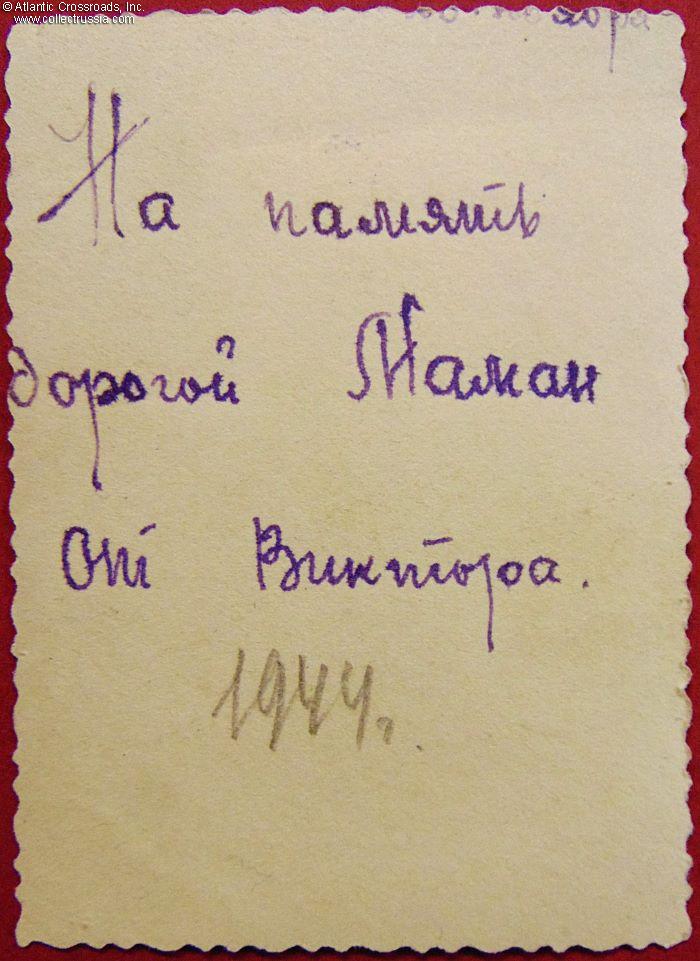 © Atlantic Crossroads, Inc.
www.collectrussia.com
На память
дорогой Маман
От Виктора.
1944г.